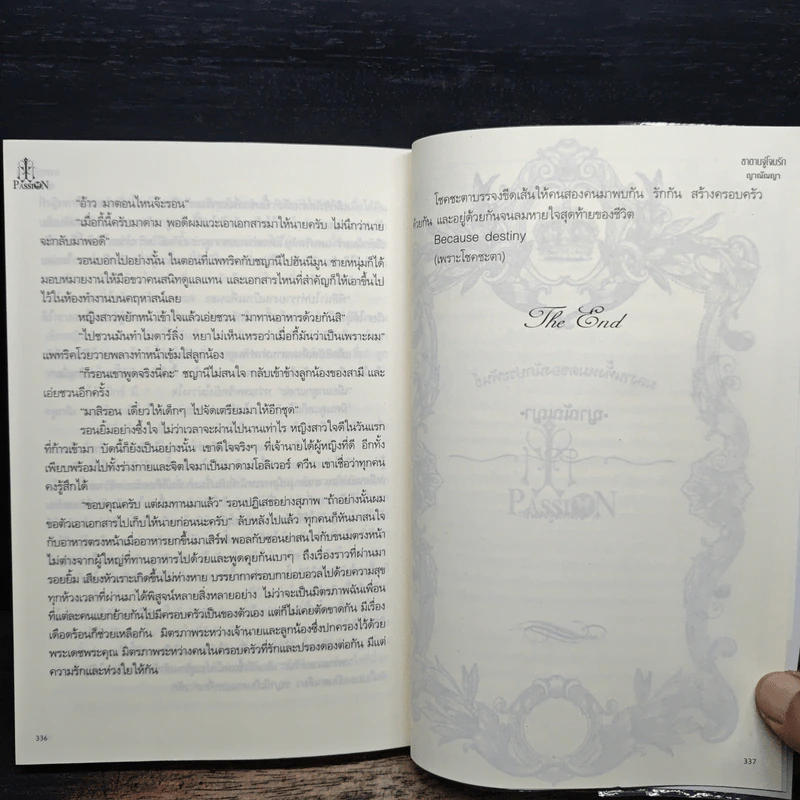 PASSION
"อ้าว มาตอนไหนจ๊ะรอน"
"เมื่อกี้นี้ครับมาดาม พอดีผมแวะเอาเอกสารมาให้นายครับ ไม่นึกว่านาย
จะกลับมาพอดี"
รอนบอกไปอย่างนั้น ในตอนที่แพทริคกับชญานีไปฮันนีมูน ชายหนุ่มก็ได้
มอบหมายงานให้มือขวาคนสนิทดูแลแทน และเอกสารไหนที่สำคัญก็ให้เอาขึ้นไป
ไว้ในห้องทำงานบนคฤหาสน์เลย
หญิงสาวพยักหน้าเข้าใจแล้วเอ่ยชวน "มาทานอาหารด้วยกันสิ"
"ไปชวนมันทำไมดาร์ลิ่ง หยาไม่เห็นเหรอว่าเมื่อกี้มันว่าเป็นเพราะผม"
แพทริคโวยวายพลางทำหน้าเข้มใส่ลูกน้อง
"ก็รอนเขาพูดจริงนี่คะ" ชญานีไม่สนใจ กลับเข้าข้างลูกน้องของสามี และ
เอ่ยชวนอีกครั้ง
"มาสิรอน เดี๋ยวให้เด็กๆ ไปจัดเตรียมมาให้อีกชุด"
รอนยิ้มอย่างซึ้งใจ ไม่ว่าเวลาจะผ่านไปนานเท่าไร หญิงสาวใจดีในวันแรก
ที่ก้าวเข้ามา บัดนี้ก็ยังเป็นอย่างนั้น เขาดีใจจริงๆ ที่เจ้านายได้ผู้หญิงที่ดี อีกทั้ง
เพียบพร้อมไปทั้งร่างกายและจิตใจมาเป็นมาดามโอลิเวอร์ ควีน เขาเชื่อว่าทุกคน
คงรู้สึกได้
"ขอบคุณครับ แต่ผมทานมาแล้ว" รอนปฏิเสธอย่างสุภาพ "ถ้าอย่างนั้นผม
ขอตัวเอาเอกสารไปเก็บให้นายก่อนนะครับ" ลับหลังไปแล้ว ทุกคนก็หันมาสนใจ
กับอาหารตรงหน้าเมื่ออาหารยกขึ้นมาเสิร์ฟ พอลกับซอนย่าสนใจกับขนมตรงหน้า
ไม่ต่างจากผู้ใหญ่ที่ทานอาหารไปด้วยและพูดคุยกันเบาๆ ถึงเรื่องราวที่ผ่านมา
รอยยิ้ม เสียงหัวเราะเกิดขึ้นไม่ห่างหาย บรรยากาศรอบกายอบอวลไปด้วยความสุข
ทุกห้วงเวลาที่ผ่านมาได้พิสูจน์หลายสิ่งหลายอย่าง ไม่ว่าจะเป็นมิตรภาพฉันเพื่อน
ที่แต่ละคนแยกย้ายกันไปมีครอบครัวเป็นของตัวเอง แต่ก็ไม่เคยตัดขาดกัน มีเรื่อง
เดือดร้อนก็ช่วยเหลือกัน มิตรภาพระหว่างเจ้านายและลูกน้องซึ่งปกครองไว้ด้วย
พระเดชพระคุณ มิตรภาพระหว่างคนในครอบครัวที่รักและปรองดองต่อกัน มีแต่
ความรักและห่วงใยให้กัน
336
ซาตานจู่โจมรัก
ญาณัณญา
โชคชะตาบรรจงขีดเส้นให้คนสองคนมาพบกัน รักกัน สร้างครอบครัว
ด้วยกัน และอยู่ด้วยกันจนลมหายใจสุดท้ายของชีวิต
Because destiny
(เพราะโชคชะตา)
The End
337